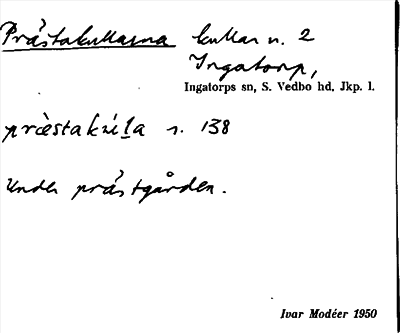 Prästakullarna kullar n. 2
Ingatorp,
Ingatorps sn, S. Vedbo hd, Jkp. l.
s. 138
Under prästgården.
Ivar Modéer 1950